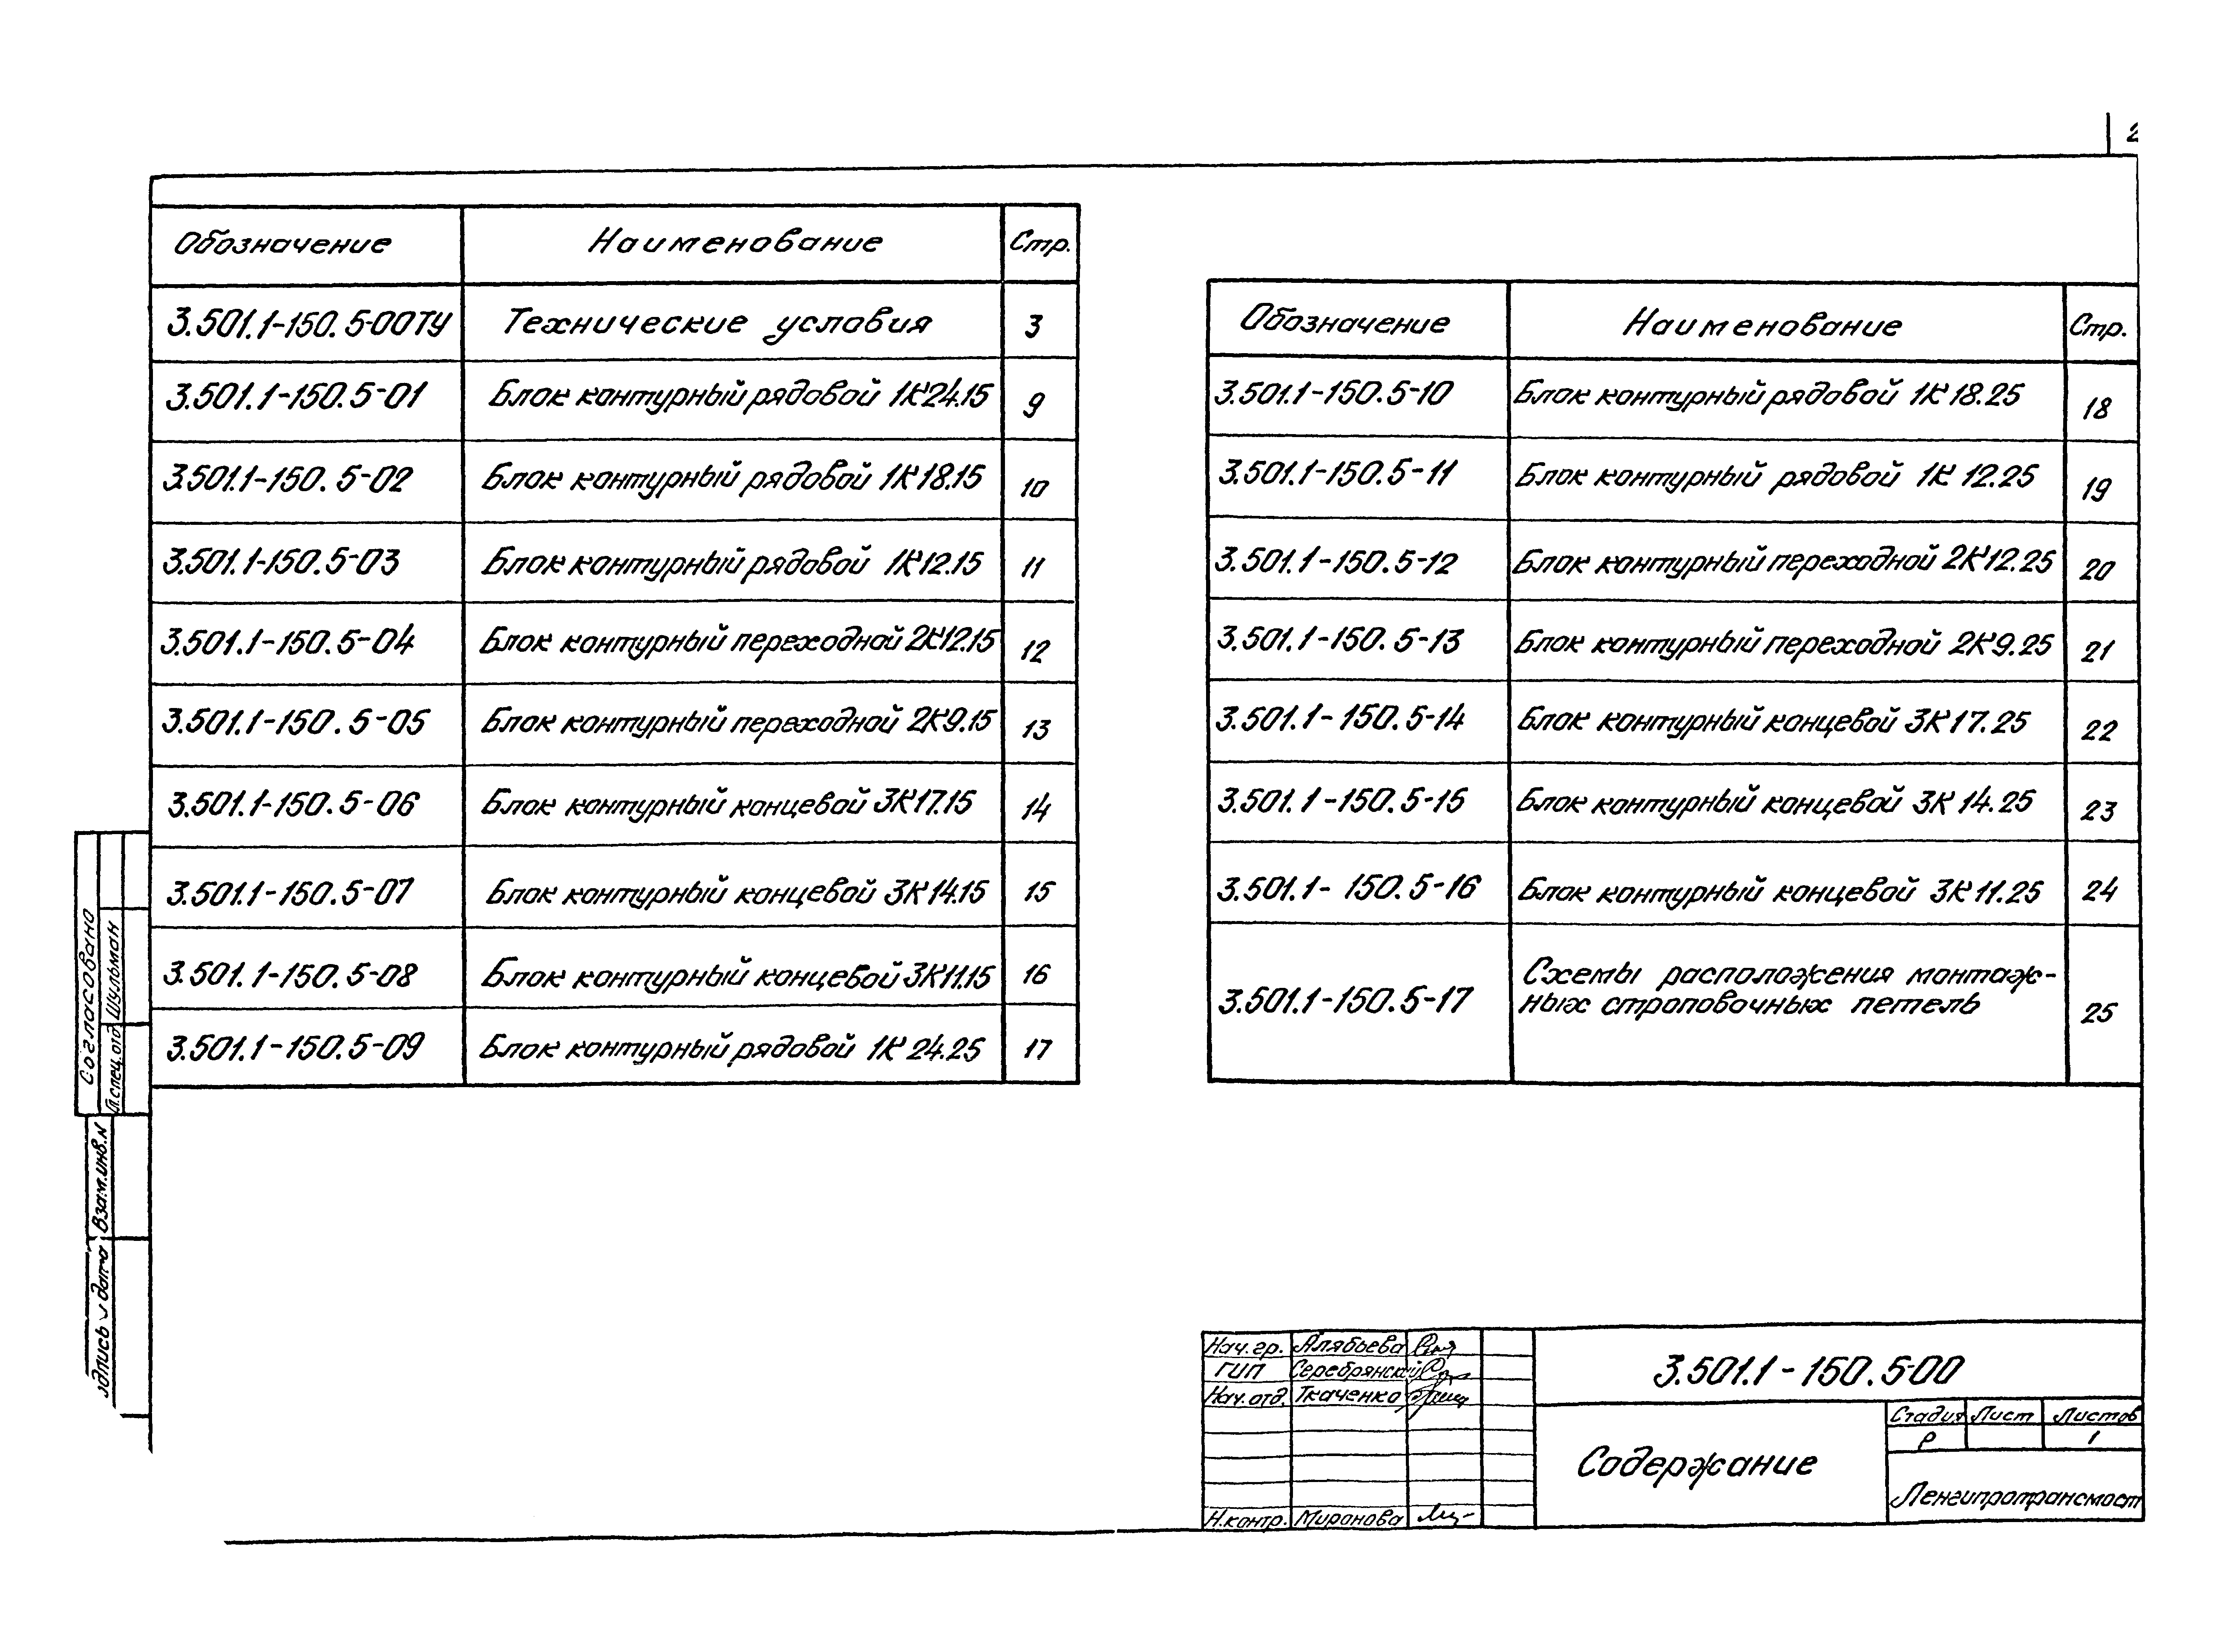 2
Обозначение Наименование Стр.
3.501.1-150.5-00ТУ Технические условия 3
3.501.1-150.5-01 Блок контурный рядовой 1К24.15 9
3.501.1-150.5-02 Блок контурный рядовой 1К18.15 10
3.501.1-150.5-03 Блок контурный рядовой 1К12.15 11
3.501.1-150.5-04 Блок контурный переходной 2К12.15 12
3.501.1-150.5-05 Блок контурный переходной 2К9.15 13
3.501.1-150.5-06 Блок контурный концевой 3К17.15 14
3.501.1-150.5-07 Блок контурный концевой 3К14.15 15
3.501.1-150.5-08 Блок контурный концевой 3К11.15 16
3.501.1-150.5-09 Блок контурный рядовой 1К24.25 17
Обозначение Наименование Стр.
3.501.1-150.5-10 Блок контурный рядовой 1К18.25 18
3.501.1-150.5-11 Блок контурный рядовой 1К 12.25 19
3.501.1-150.5-12 Блок контурный переходной 2К12.25 20
3.501.1-150.5-13 Блок контурный переходной 2К9.25 21
3.501.1-150.5-14 Блок контурный концевой 3К17.25 22
3.501.1-150.5-15 Блок контурный концевой 3К 14.25 23
3.501.1-150.5-16 Блок контурный концевой 3К11.25 24
3.501.1-150.5-17 Схемы расположения монтаж-
ных строповочных петель 25
Согласовано
Гл.спец.отд Шульман
Взам.инв.N
одпись и дата
Нач.гр. Алябьева
ГИП Серебрянский
Нач.отд. Ткаченко
Н.контр. Миронова
3.501.1-150.5-00
Содержание
Стадия Лист Листов
Р 1
Ленгипротрансмост